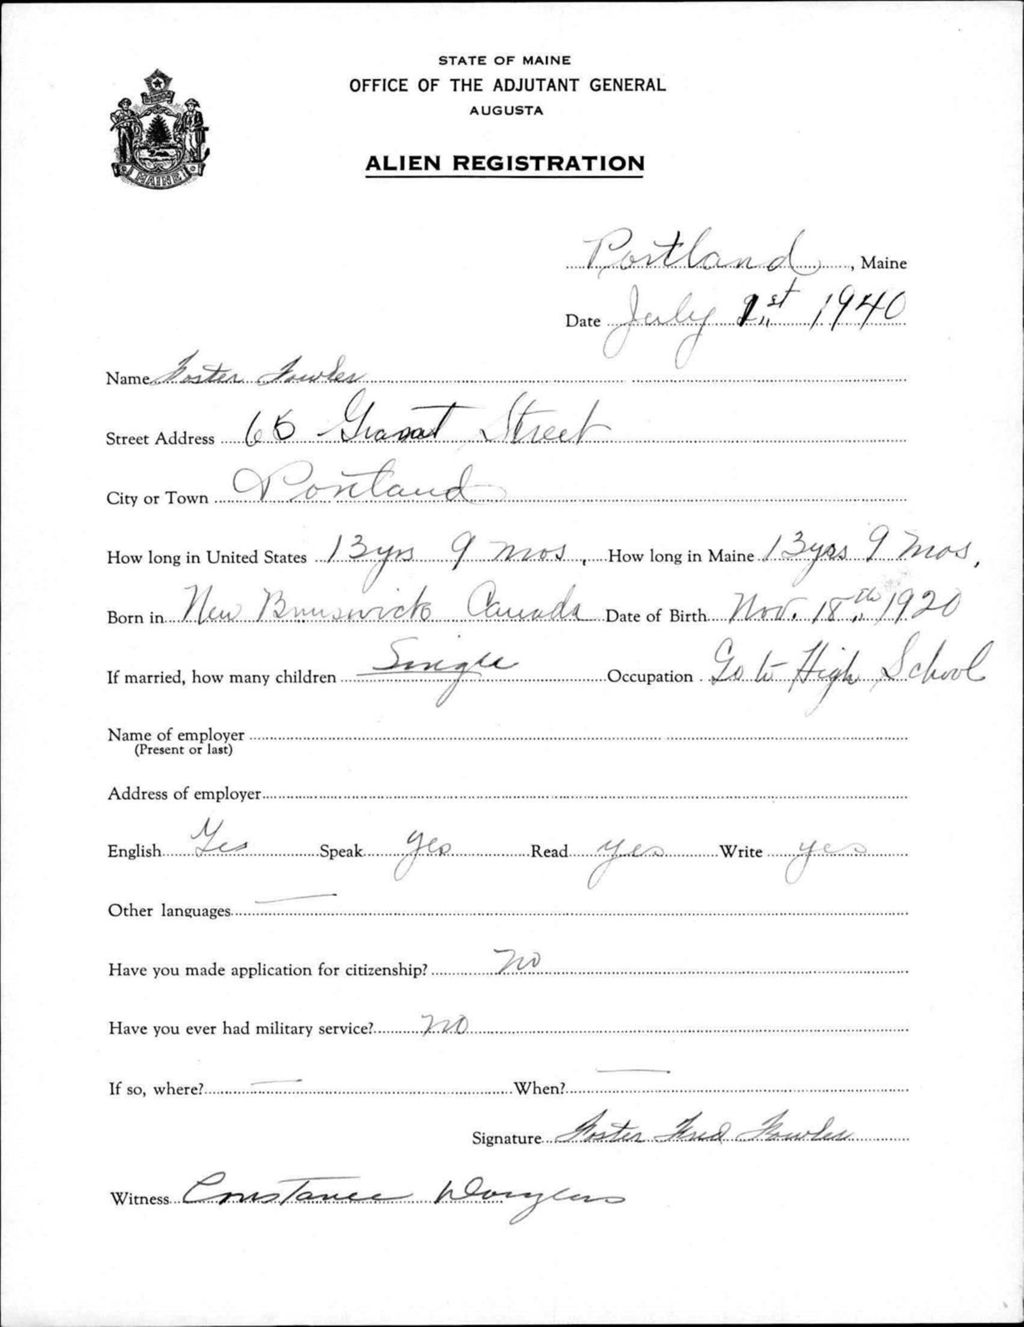 STATE OF MAINE
OFFICE OF THE ADJUTANT GENERAL
AUGUSTA
ALIEN REGISTRATION
MAINE
Portland, Maine
Date July 1st 1940
Name Foster Fowler
Street Address 65 Grant Street
City or Town Portland
How long in United States 13 yrs 9 mos, How long in Maine 13 yrs 9 mos,
Born in New Brunswick Canada Date of Birth Nov. 18th 1920
If married, how many children Single Occupation Go to High School
Name of employer
(Present or last)
Address of employer
English Yes Speak yes Read yes Write yes
Other languages —
Have you made application for citizenship? No
Have you ever had military service? No
If so, where? — When? —
Signature Foster Fred Fowler
Witness Constance Douglass